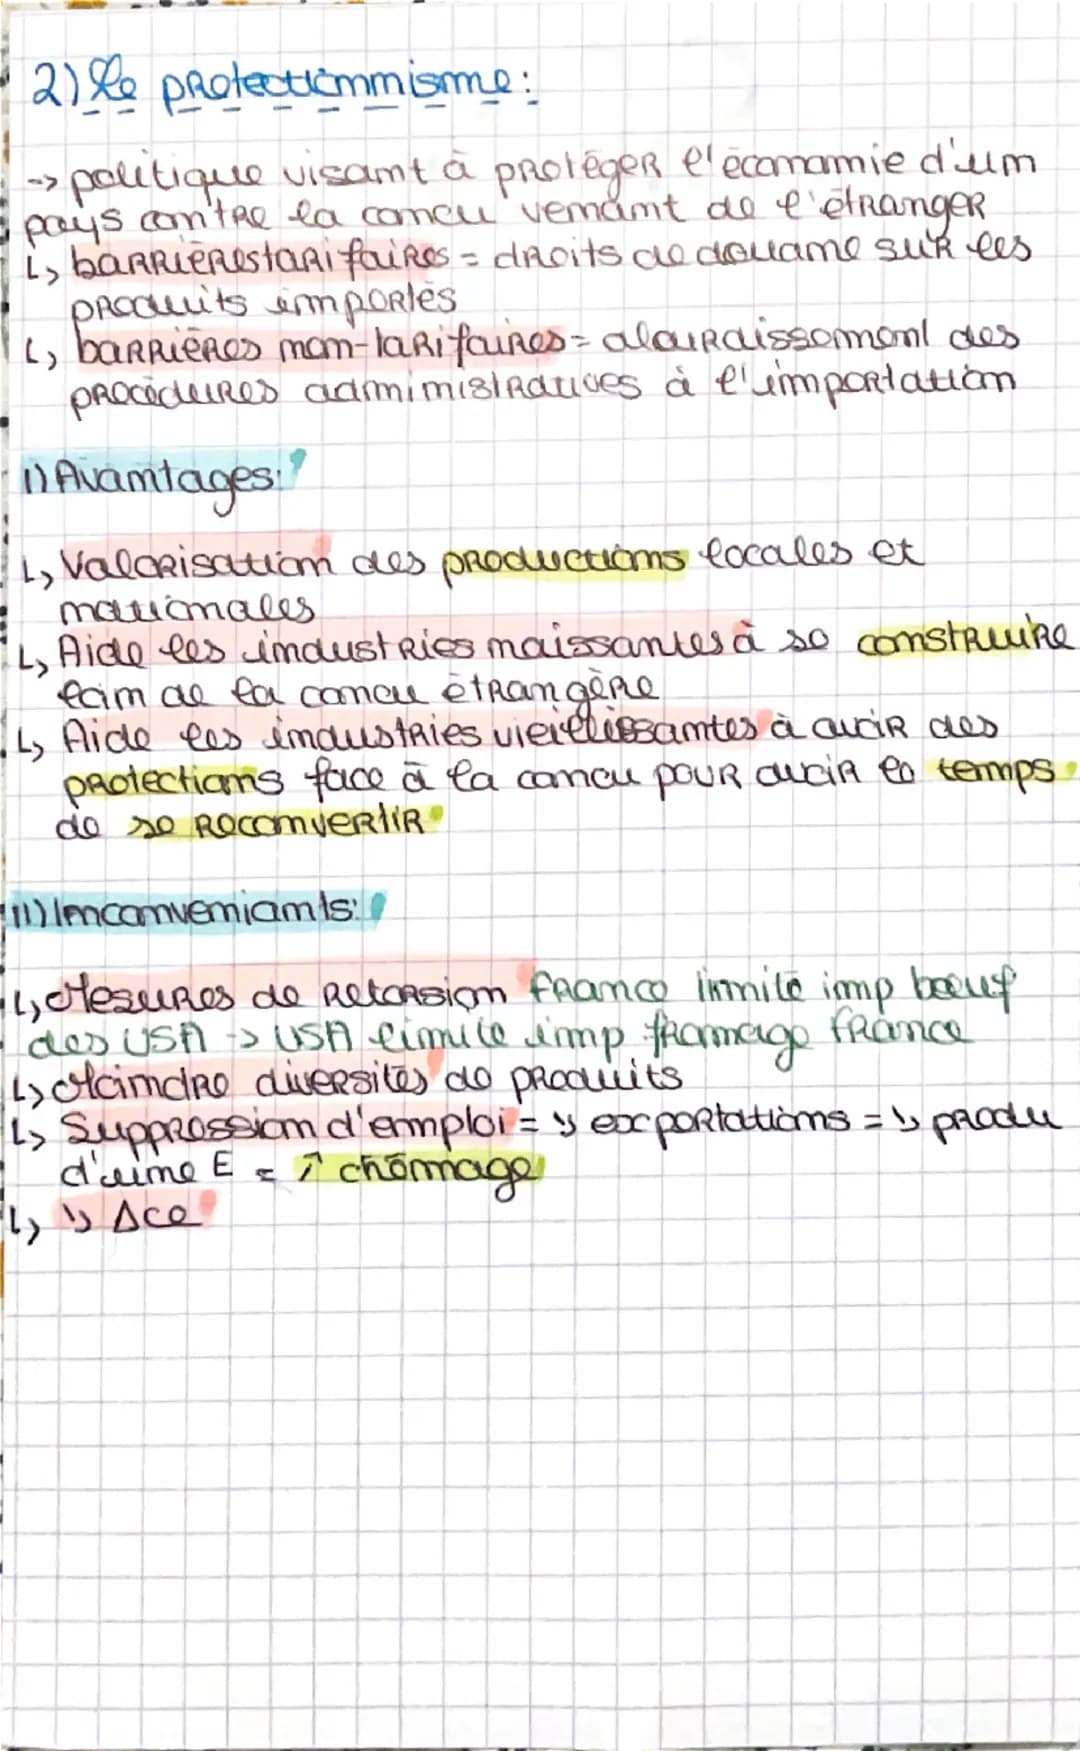 2) Le protectionnisme:
-> politique visant à protéger l'économie d'un
pays contre la concu venant de l'étranger
↳ barrières tarifaires = droits de douane sur les
produits importés
↳ barrières non-tarifaires = alourdissement des
procédures administratives à l'importation
I) Avantages:
↳ Valorisation des productions locales et
nationales
↳ Aide les industries naissantes à se construire
loin de la concu étrangère
↳ Aide les industries vieillissantes à avoir des
protections face à la concu pour avoir le temps
de se reconvertir
II) Inconveniants:
↳ Mesures de retorsion France limite imp bœuf
des USA -> USA limite imp fromage France
↳ Moindre diversités de produits
↳ Suppression d'emploi = ↘ exportations = ↘ produ
d'une E = ↗ chômage
↳ ↘ Δce